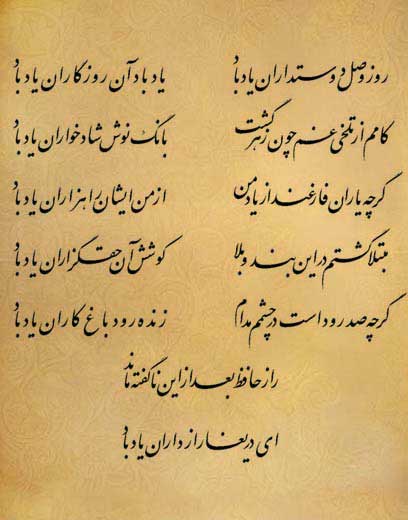 روز وصل دوستداران یاد باد یاد باد آن روزگاران یاد باد
کامم از تلخی غم چون زهر گشت بانگ نوش شادخواران یاد باد
گرچه یاران فارغند از یاد من از من ایشان را هزاران یاد باد
مبتلا گشتم در این بند و بلا کوشش آن حقگزاران یاد باد
گرچه صد رود است در چشمم مدام زنده رود باغ کاران یاد باد
راز حافظ بعد از این ناگفته ماند
ای دریغا رازداران یاد باد